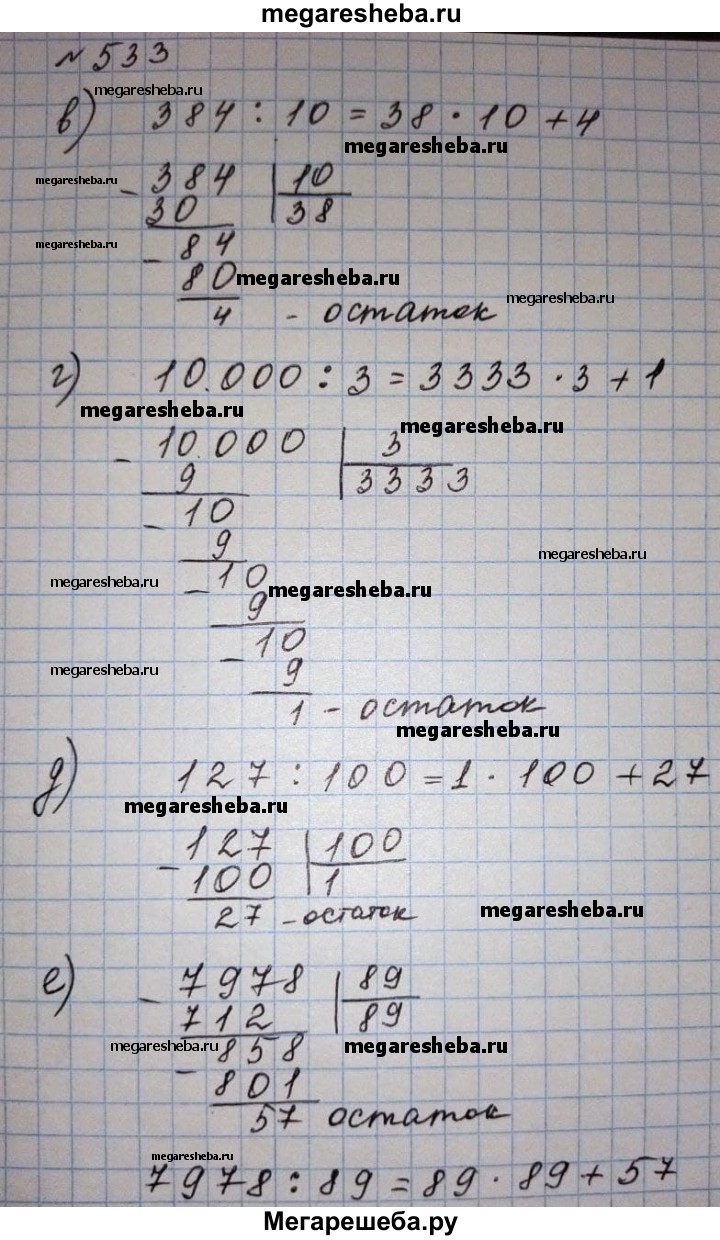 megaresheba.ru
№ 533
megaresheba.ru
в) 384 : 10 = 38 · 10 + 4
megaresheba.ru
megaresheba.ru
- 384 | 10
30 38
megaresheba.ru
- 84
80 megaresheba.ru
megaresheba.ru
4 - остаток
г) 10.000 : 3 = 3333 · 3 + 1
megaresheba.ru
megaresheba.ru
- 10.000 | 3
9 3333
- 10
9
megaresheba.ru
megaresheba.ru
- 10 megaresheba.ru
9
- 10
megaresheba.ru
9
1 - остаток
megaresheba.ru
д) 127 : 100 = 1 · 100 + 27
megaresheba.ru
- 127 | 100
100 1
27 - остаток
megaresheba.ru
е) - 7978 | 89
712 89
megaresheba.ru
- 858 megaresheba.ru
801
57 остаток
megaresheba.ru
7978 : 89 = 89 · 89 + 57
Мегарешеба.ру